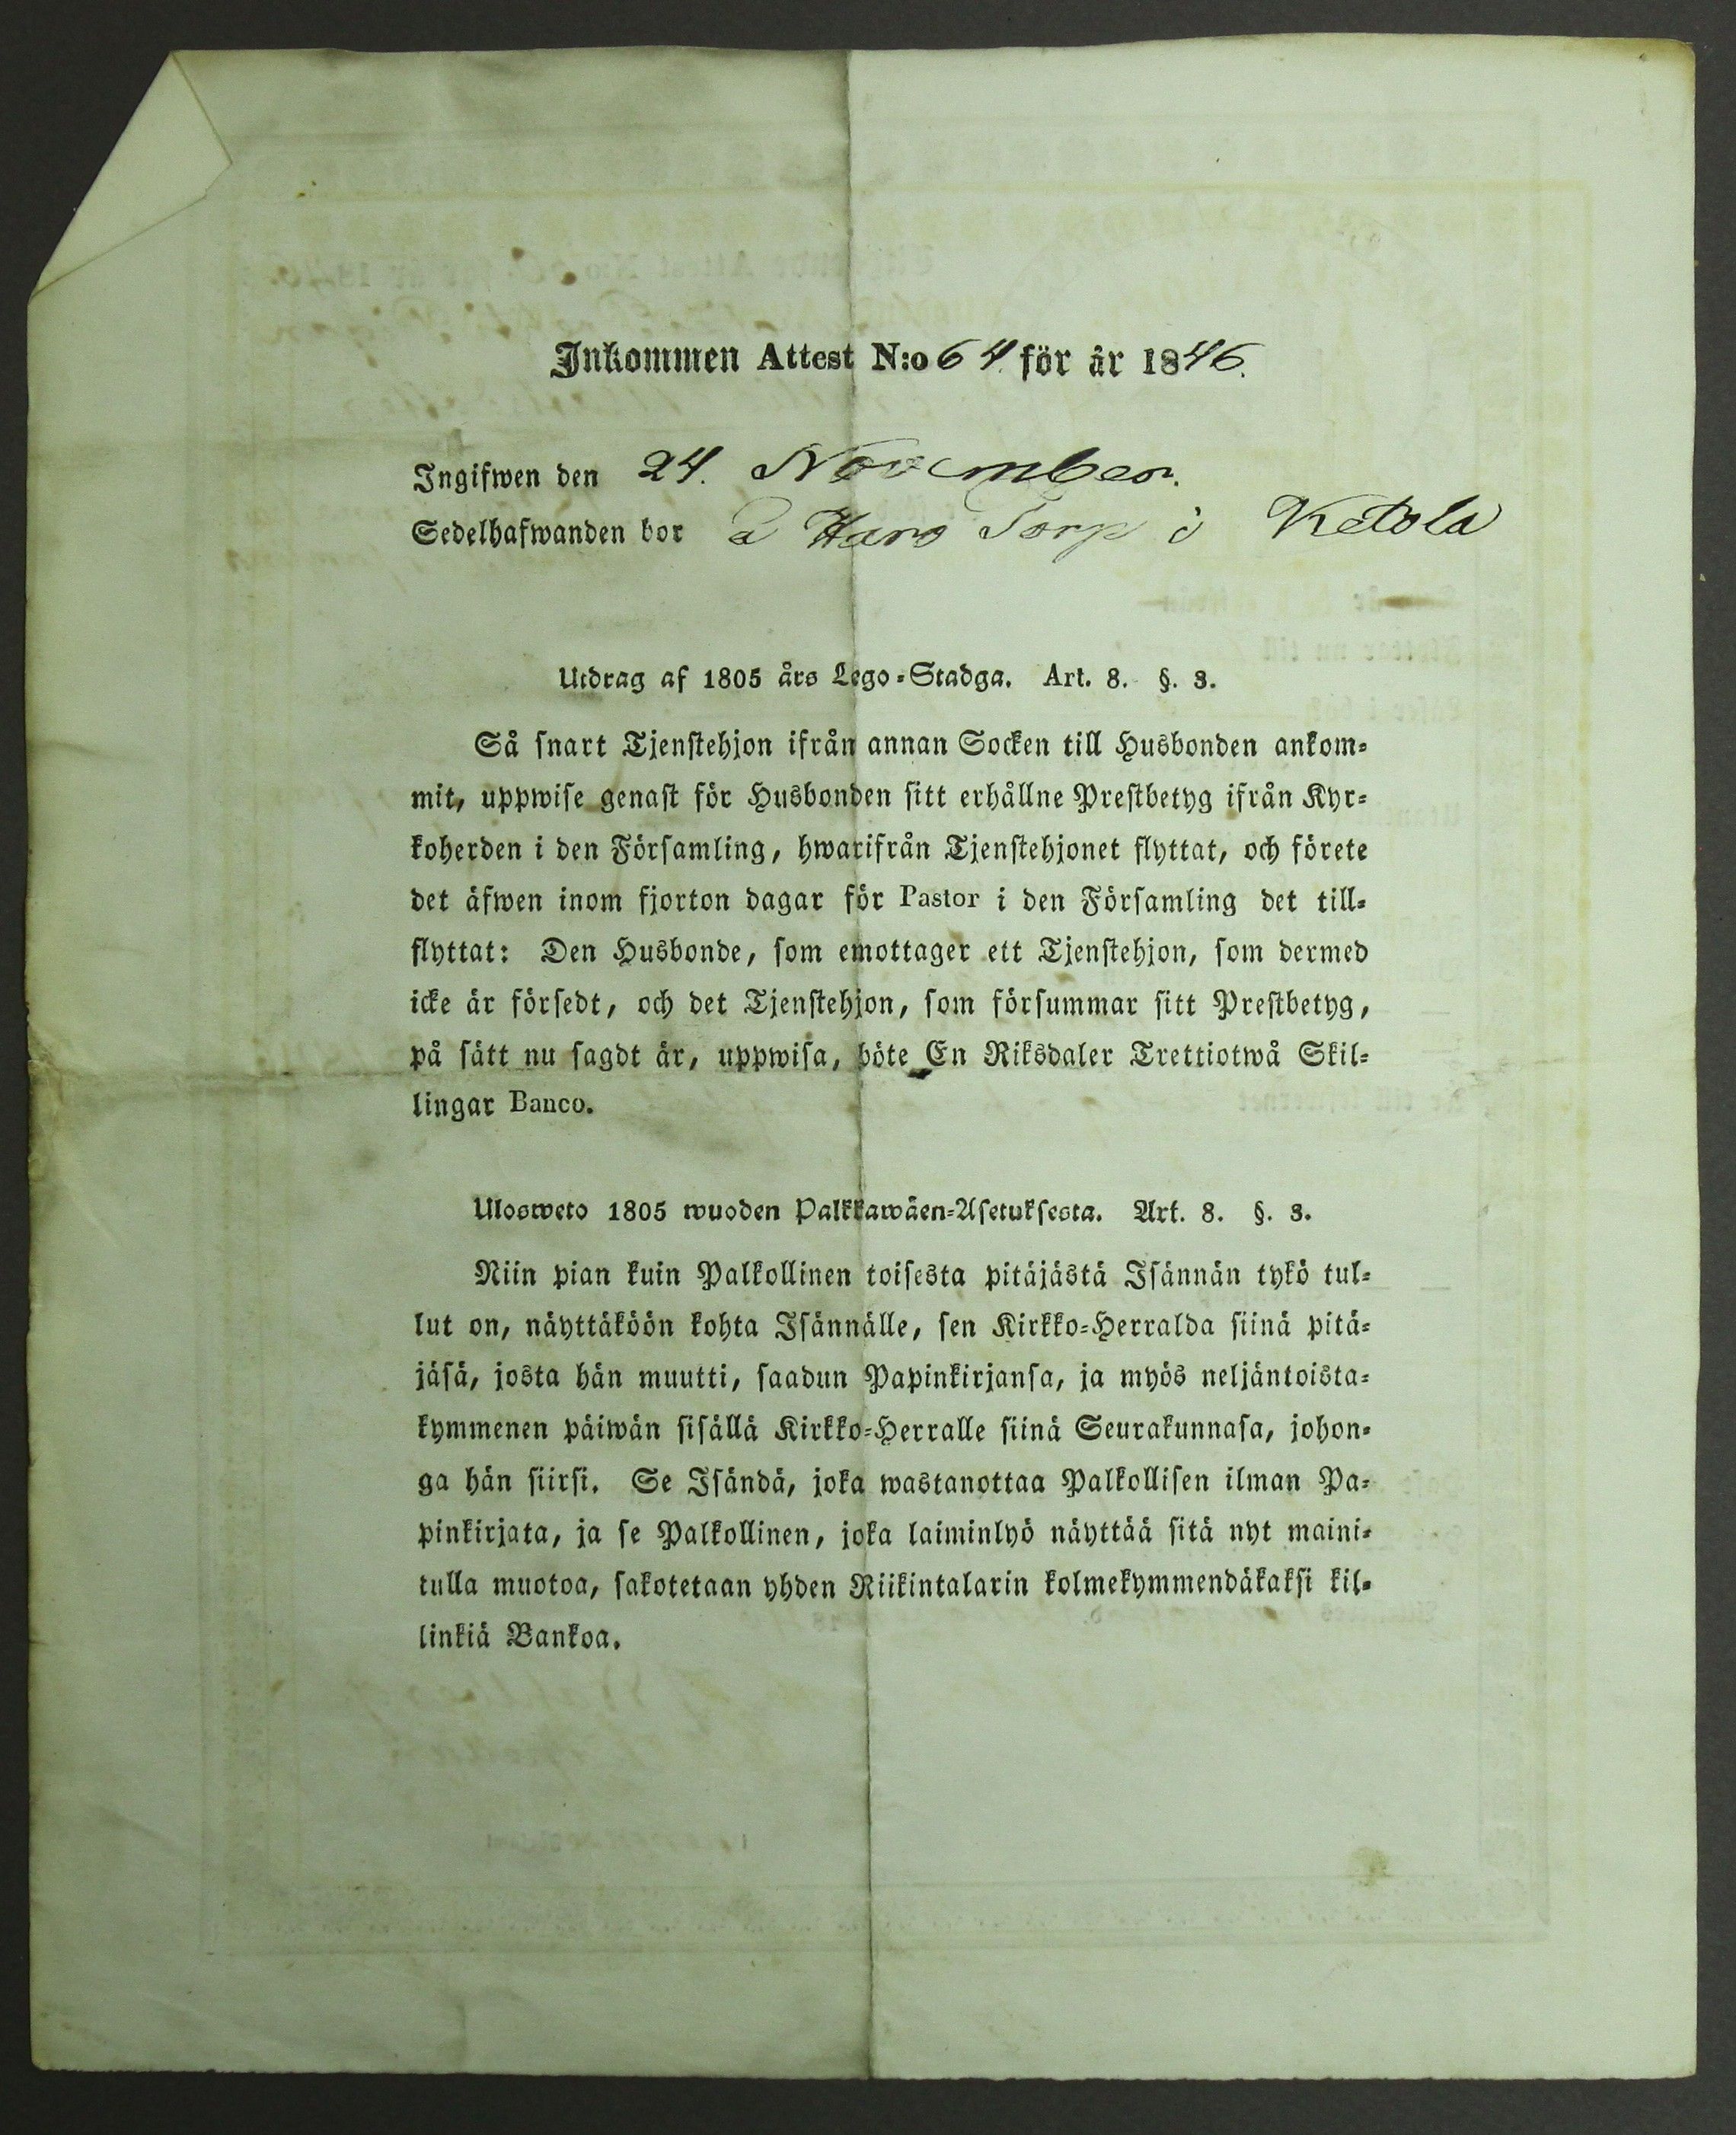 Inkommen Attest N:o 64. för år 1846.
Ingifwen den 24. November.
Sedelhafwanden bor å Haro Torp i Ketola
Utdrag af 1805 års Lego-Stadga. Art. 8. §. 3.
Så snart Tjenstehjon ifrån annan Socken till Husbonden ankom-
mit, uppwise genast för Husbonden sitt erhållne Prestbetyg ifrån Kyr-
koherden i den Församling, hwarifrån Tjenstehjonet flyttat, och förete
det äfwen inom fjorton dagar för Pastor i den Församling det till-
flyttat: Den Husbonde, som emottager ett Tjenstehjon, som dermed
icke är försedt, och det Tjenstehjon, som försummar sitt Prestbetyg,
på sätt nu sagdt är, uppwisa, böte En Riksdaler Trettiotwå Skil-
lingar Banco.
Ulosweto 1805 wuoden Palkkawäen-Asetuksesta. Art. 8. §. 3.
Niin pian kuin Palkollinen toisesta pitäjästä Isännän tykö tul-
lut on, näyttäköön kohta Isännälle, sen Kirkko-Herralda siinä pitä-
jäsä, josta hän muutti, saadun Papinkirjansa, ja myös neljäntoista-
kymmenen päiwän sisällä Kirkko-Herralle siinä Seurakunnasa, johon-
ga hän siirsi. Se Isändä, joka wastanottaa Palkollisen ilman Pa-
pinkirjata, ja se Palkollinen, joka laiminlyö näyttää sitä nyt maini-
tulla muotoa, sakotetaan yhden Riikintalarin kolmekymmendäkaksi kil-
linkiä Bankoa.